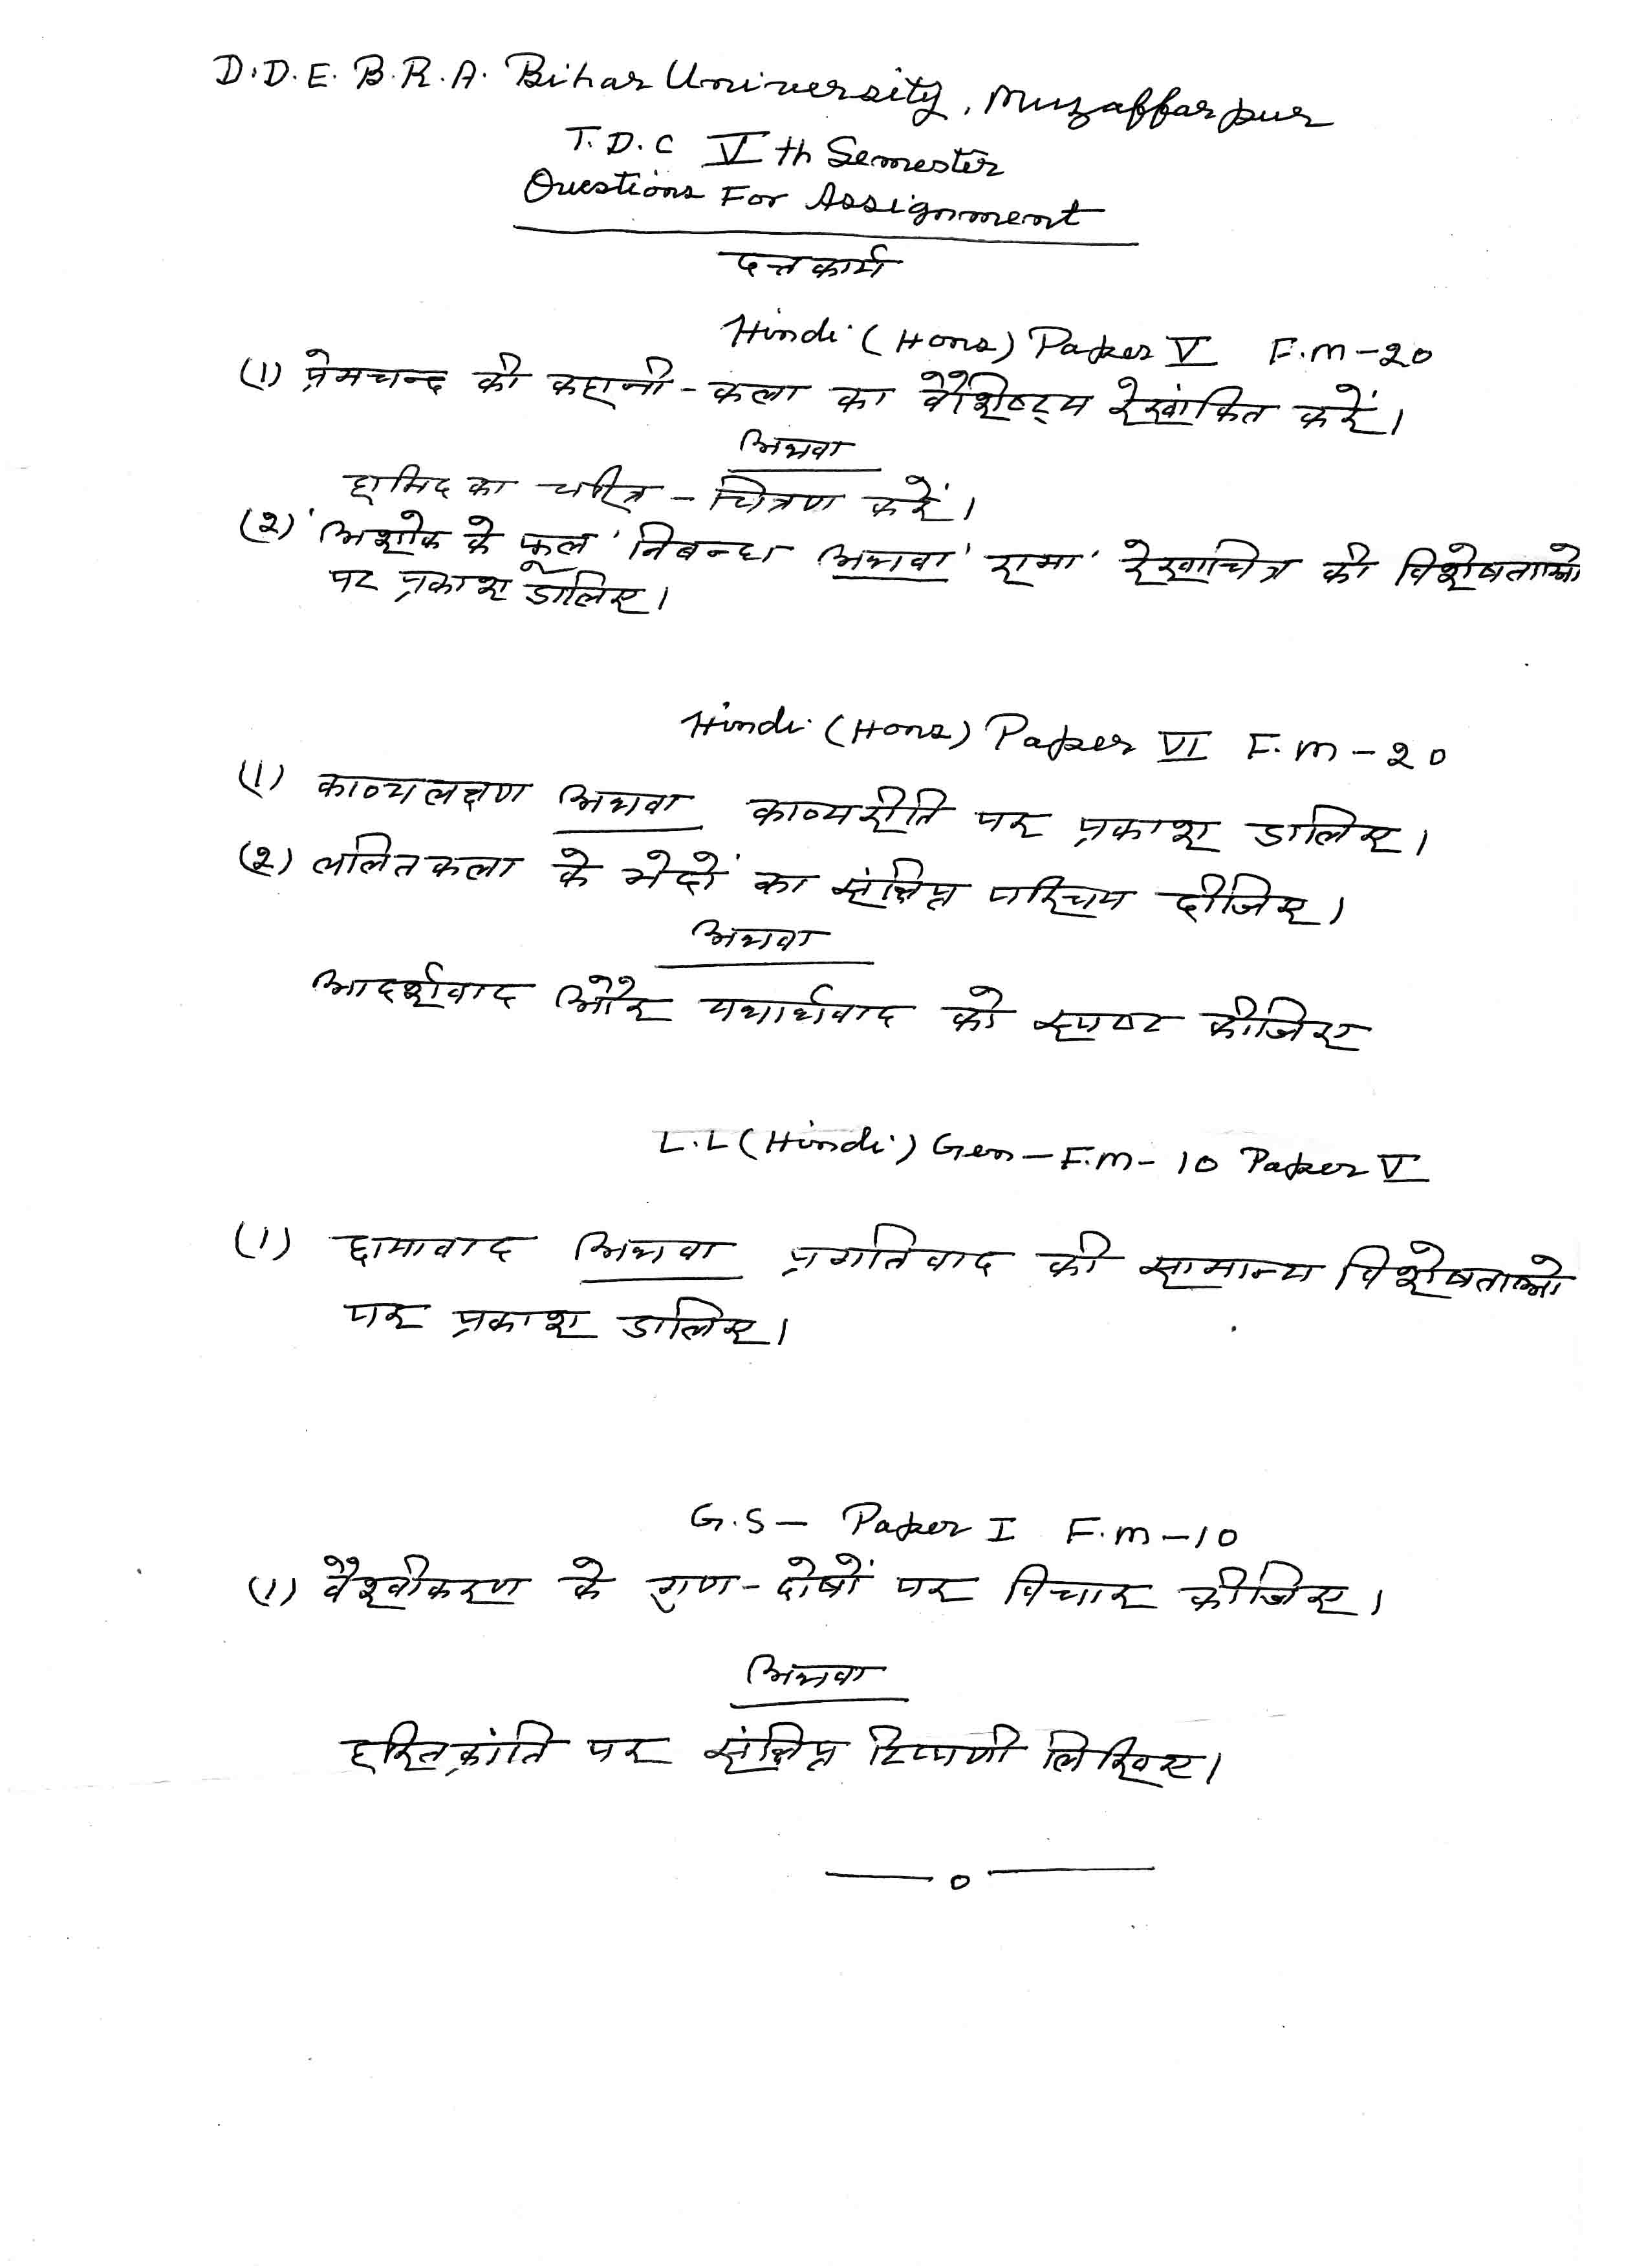 D.D.E. B.R.A. Bihar University, Muzaffarpur
T.D.C V th Semester
Questions For Assignment
दत्तकार्य
Hindi (Hons) Paper V F.M-20
(1) प्रेमचन्द की कहानी-कला का वैशिष्ट्य रेखांकित करें।
अथवा
हामिद का चरित्र-चित्रण करें।
(२) 'अशोक के फूल' निबन्ध अथवा 'रामा' रेखाचित्र की विशेषताओं
पर प्रकाश डालिए।
Hindi (Hons) Paper VI F.M-२0
(1) काव्यलक्षण अथवा काव्यरीति पर प्रकाश डालिए।
(२) ललितकला के भेदों का संक्षिप्त परिचय दीजिए।
अथवा
आदर्शवाद और यथार्थवाद को स्पष्ट कीजिए
L.L (Hindi) Gen-F.M-10 Paper V
(1) छायावाद अथवा प्रगतिवाद की सामान्य विशेषताओं
पर प्रकाश डालिए।
G.S- Paper I F.M-10
(1) वैश्वीकरण के गुण-दोषों पर विचार कीजिए।
अथवा
हरितक्रांति पर संक्षिप्त टिप्पणी लिखिए।